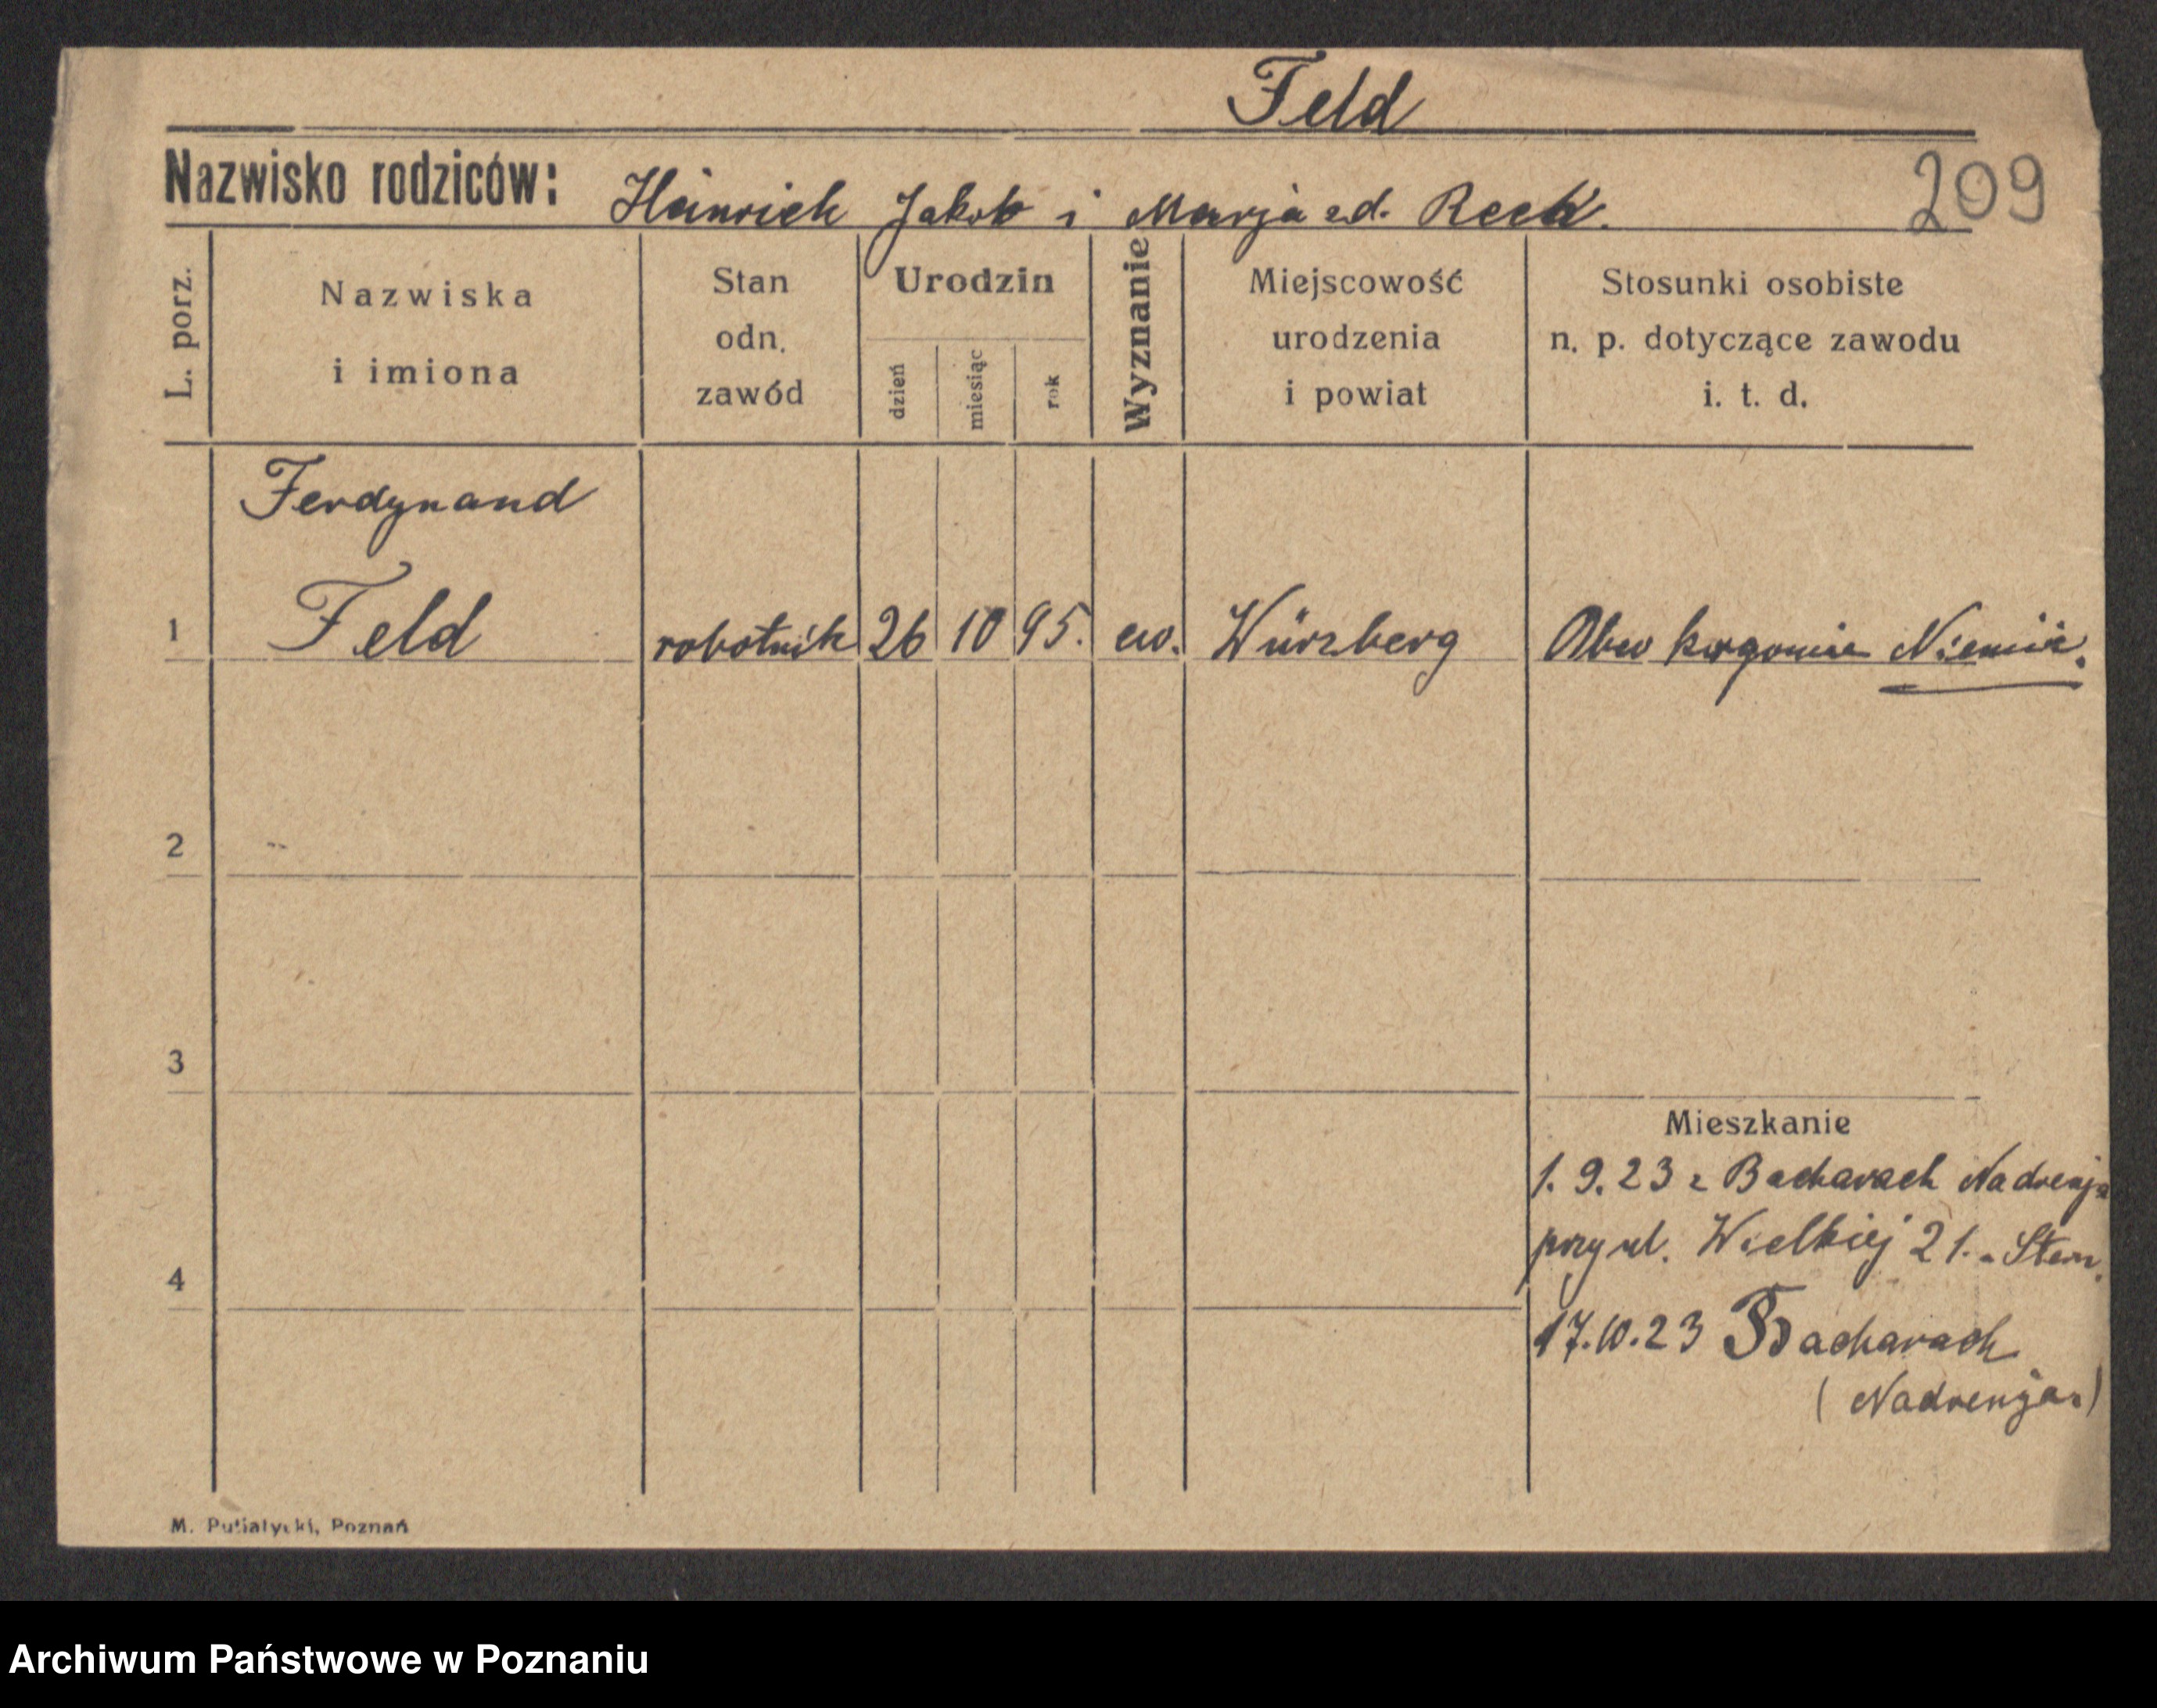 Feld
Nazwisko rodziców: Heinrich Jakob i Marja zd. Reck. 209
L. porz.
Nazwiska i imiona
Stan odn. zawód
Urodzin
dzień miesiąc rok
Wyznanie
Miejscowość urodzenia i powiat
Stosunki osobiste n. p. dotyczące zawodu i. t. d.
Ferdynand
1 Feld robotnik 26 10 95. ew. Würzberg Obw Niemiec.
2
3
Mieszkanie
1.9.23 z Bacharach Nadrenja
przy ul. Wielkiej 21. Stem.
4
17.10.23 Bacharach
(Nadrenja)
M. Putiatycki, Poznań
Archiwum Państwowe w Poznaniu